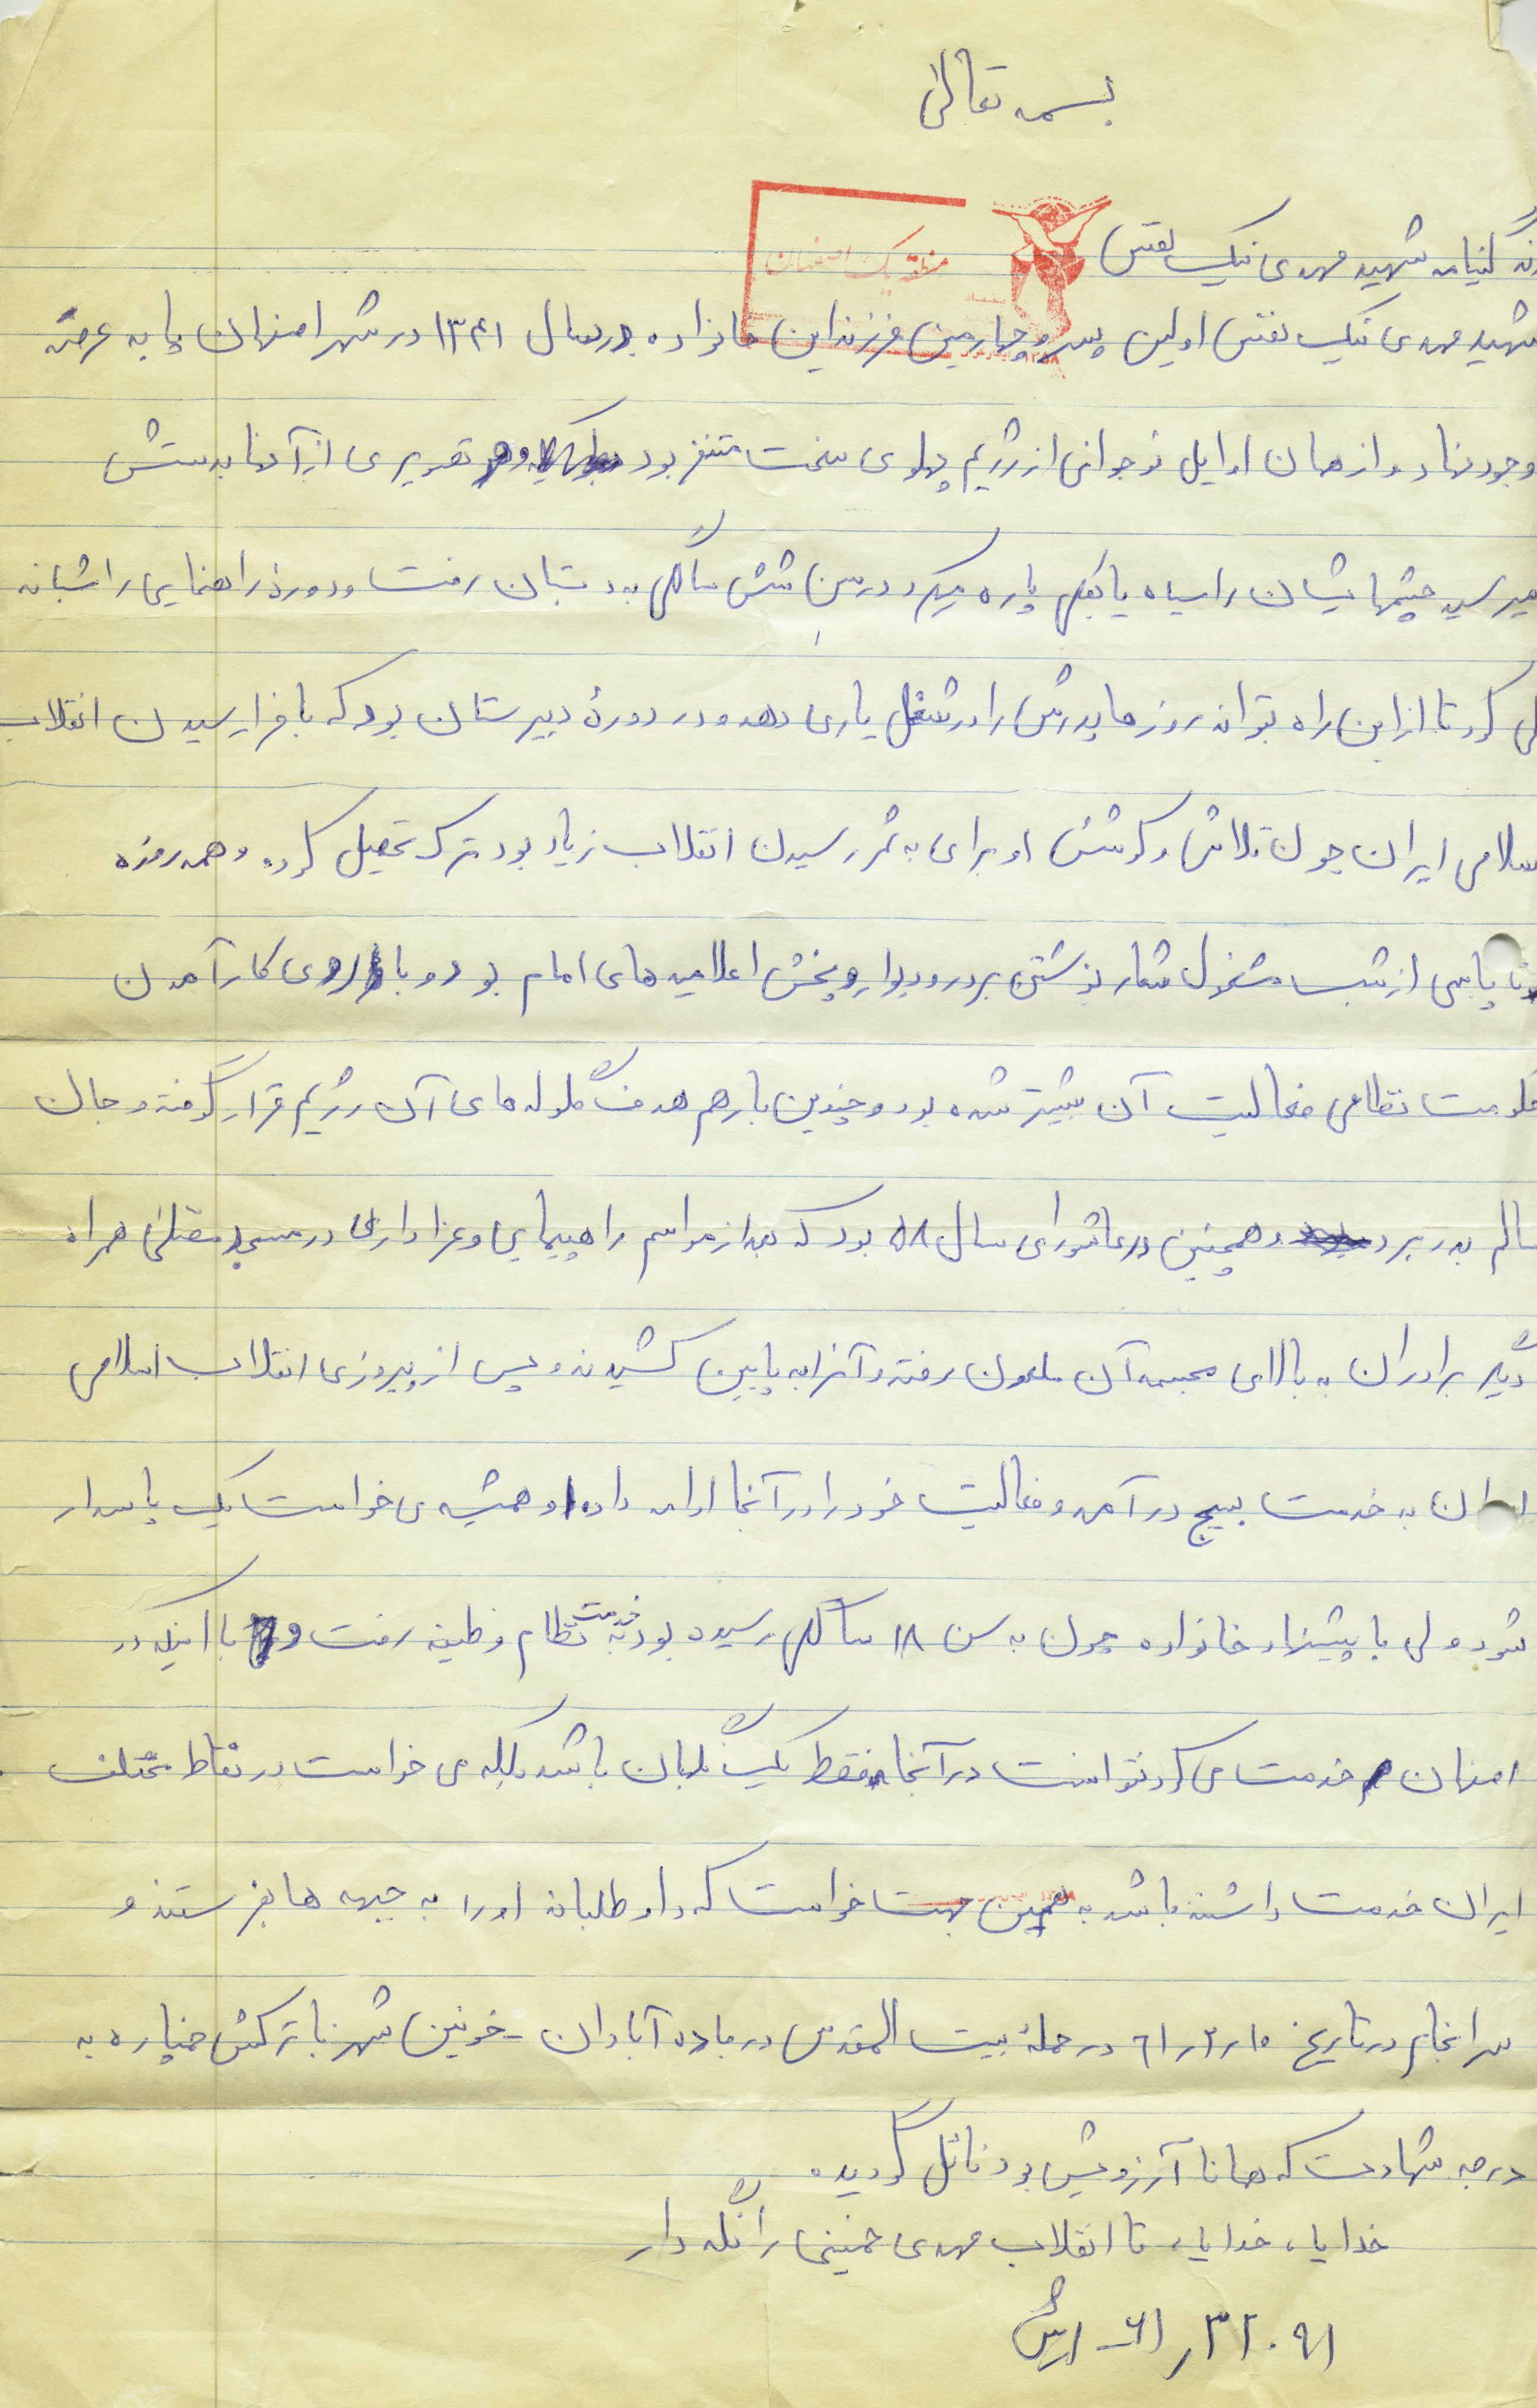 بسمه تعالی
زندگینامه شهید مهدی نیک نفس
منطقه یک اصفهان
شهید مهدی نیک نفس اولین پسر و چهارمین فرزند این خانواده در سال ۱۳۴۱ در شهر اصفهان پا به عرصه
وجود نهاد و از همان اوایل نوجوانی از رژیم پهلوی سخت متنفر بود تصویری از آنها بدستش
میرسید چشمهایشان را سیاه یا بکلی پاره میکرد در سن شش سالگی به دبستان رفت و دورۀ راهنمایی را شبانه
می کرد تا از این راه بتواند روزها پدرش را در شغل یاری دهد و در دورۀ دبیرستان بود که با فرا رسیدن انقلاب
اسلامی ایران چون تلاش و کوشش او برای به ثمر رسیدن انقلاب زیاد بود ترک تحصیل کرد و همه روزه
تا پاسی از شب مشغول شعار نوشتن بر در و دیوار و پخش اعلامیه های امام بود و با روی کار آمدن
حکومت نظامی فعالیت آن بیشتر شده بود و چندین بار هم هدف گلوله های آن رژیم قرار گرفته و جان
سالم بدر برد و همچنین در عاشورای سال ۵۸ بود که بعد از مراسم راهپیمایی و عزاداری در مسجد مصلی همراه
دیگر برادران به بالای مجسمه آن ملعون رفته و آنرا به پایین کشیدند و پس از پیروزی انقلاب اسلامی
ایران به خدمت بسیج درآمد و فعالیت خود را در آنجا ادامه داد او همیشه می خواست یک پاسدار
شود ولی با پیشنهاد خانواده چون به سن ۱۸ سالگی رسیده بود به خدمت نظام وظیفه رفت و با اینکه در
اصفهان خدمت می کرد نتوانست در آنجا فقط یک نگهبان باشد بلکه می خواست در نقاط مختلف
ایران خدمت داشته باشد به همین جهت خواست که داوطلبانه او را به جبهه ها بفرستند و
سرانجام در تاریخ ۱۰ر۲ر۶۱ در حملۀ بیت المقدس در جاده آبادان - خونین شهر با ترکش خمپاره به
درجه شهادت که همانا آرزویش بود نائل گردید.
خدایا، خدایا، تا انقلاب مهدی خمینی را نگه دار